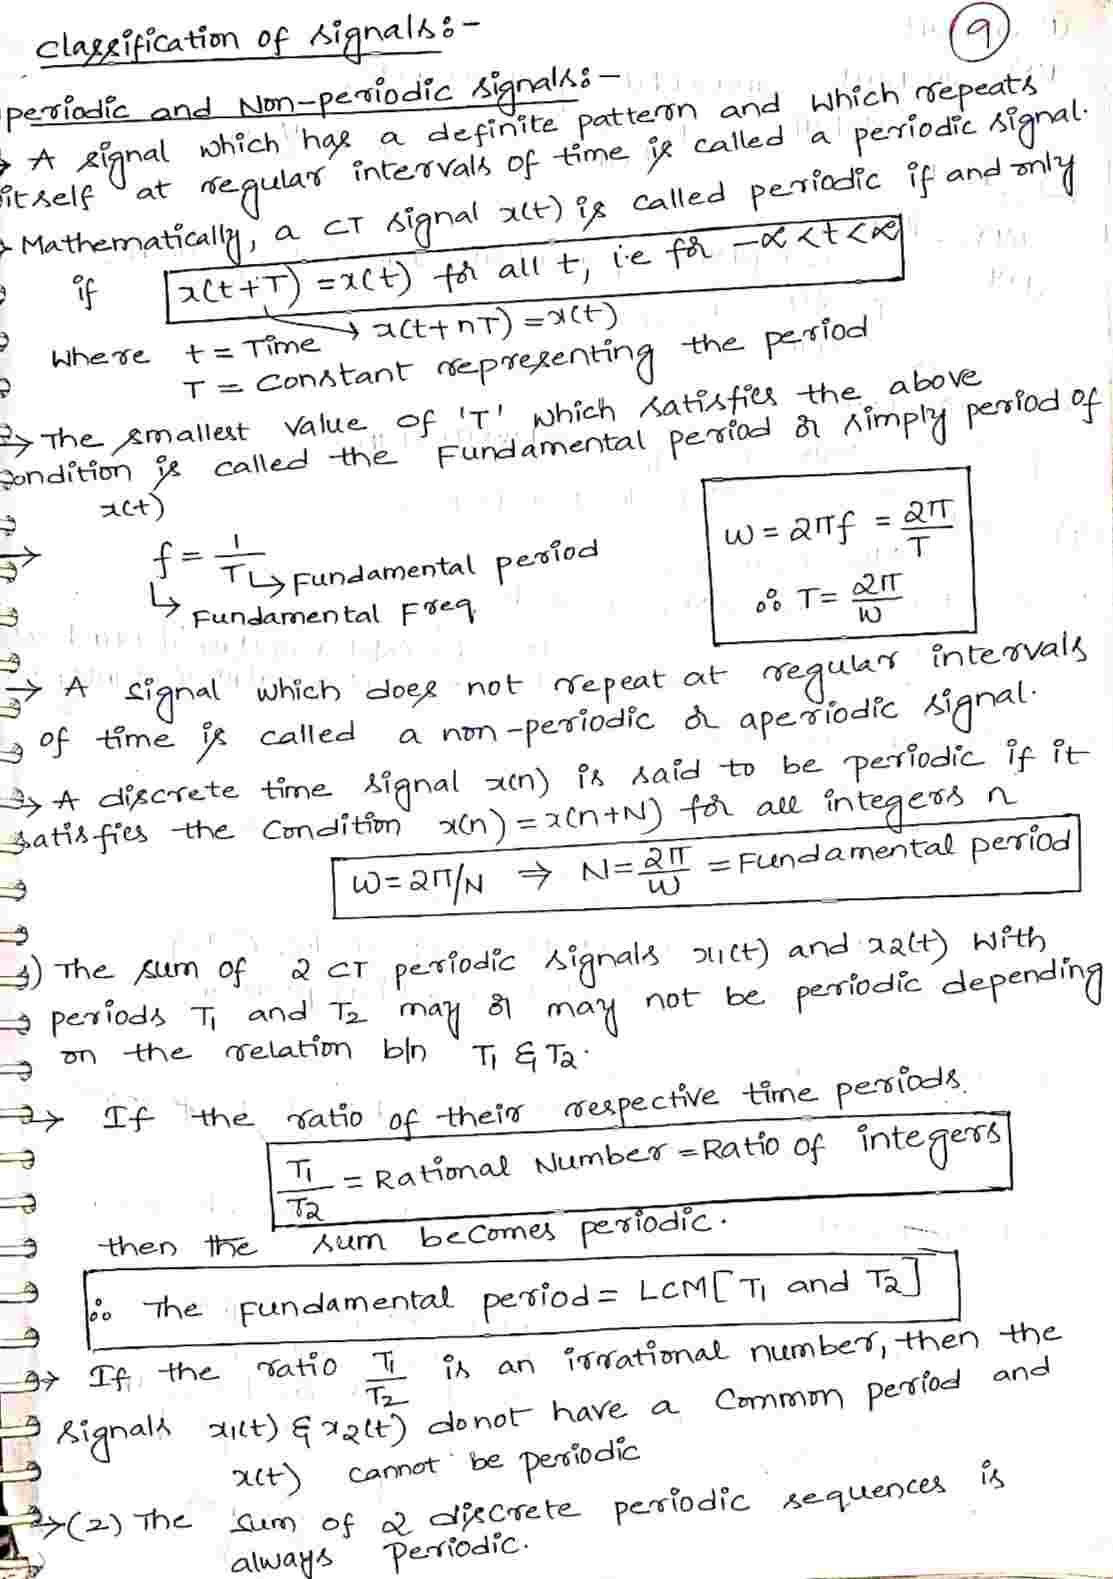 9
Classification of signals:-
periodic and Non-periodic signals:-
→ A signal which has a definite pattern and which repeats
itself at regular intervals of time is called a periodic signal.
→ Mathematically, a CT signal x(t) is called periodic if and only
if x(t+T) = x(t) for all t, i.e for -∝ < t < ∝
→ x(t+nT) = x(t)
Where t = Time
T = Constant representing the period
→ The smallest value of 'T' which satisfies the above
condition is called the Fundamental period or simply period of
x(t)
→ f = 1/T ↳ Fundamental period
↳ Fundamental Freq
ω = 2πf = 2π/T
∴ T = 2π/ω
→ A signal which does not repeat at regular intervals
of time is called a non-periodic or aperiodic signal.
→ A discrete time signal x(n) is said to be periodic if it
satisfies the condition x(n) = x(n+N) for all integers n
ω = 2π/N ⇒ N = 2π/ω = Fundamental period
1) The sum of 2 CT periodic signals x1(t) and x2(t) With
periods T1 and T2 may or may not be periodic depending
on the relation b/n T1 & T2.
→ If the ratio of their respective time periods
T1/T2 = Rational Number = Ratio of integers
then the sum becomes periodic.
∴ The fundamental period = LCM[T1 and T2]
→ If the ratio T1/T2 is an irrational number, then the
signals x1(t) & x2(t) donot have a Common period and
x(t) cannot be periodic
→ (2) The sum of 2 discrete periodic sequences is
always Periodic.